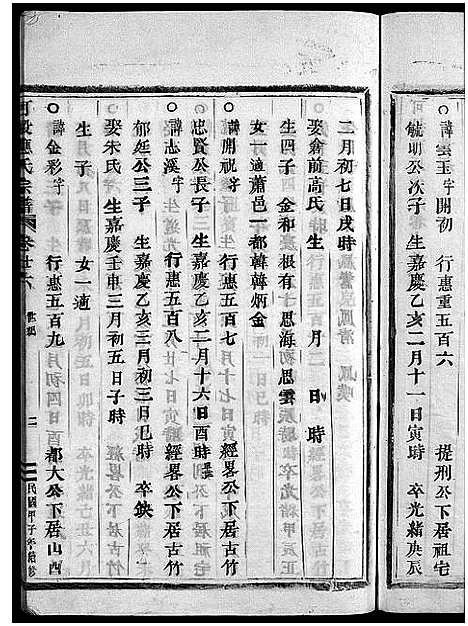 ○諱雲玉字開初 行惠重五百六 提刑公下居祖宅
毓明公次子 生嘉慶乙亥二月十一日寅時 卒光緒庚辰
二月初七日戌時
娶翕前高氏 生 月 日 時
生四子 金和 根有 思海 思雲
女一適蕭邑一都韓韓炳金
○諱開祝字 行惠五百七 經畧公下居古竹
忠賢公長子 生嘉慶乙亥二月十六日酉時
○諱志溪字 行惠五百八 經畧公下居古竹
郁廷公三子 生嘉慶乙亥三月初三日巳時 卒缺
娶朱氏 生嘉慶壬申三月初五日子時
生 子 女一適
○諱金彩字 行惠五百九 都大公下居山西
氏宗譜 卷廿六 世系 二 民國甲子年續修